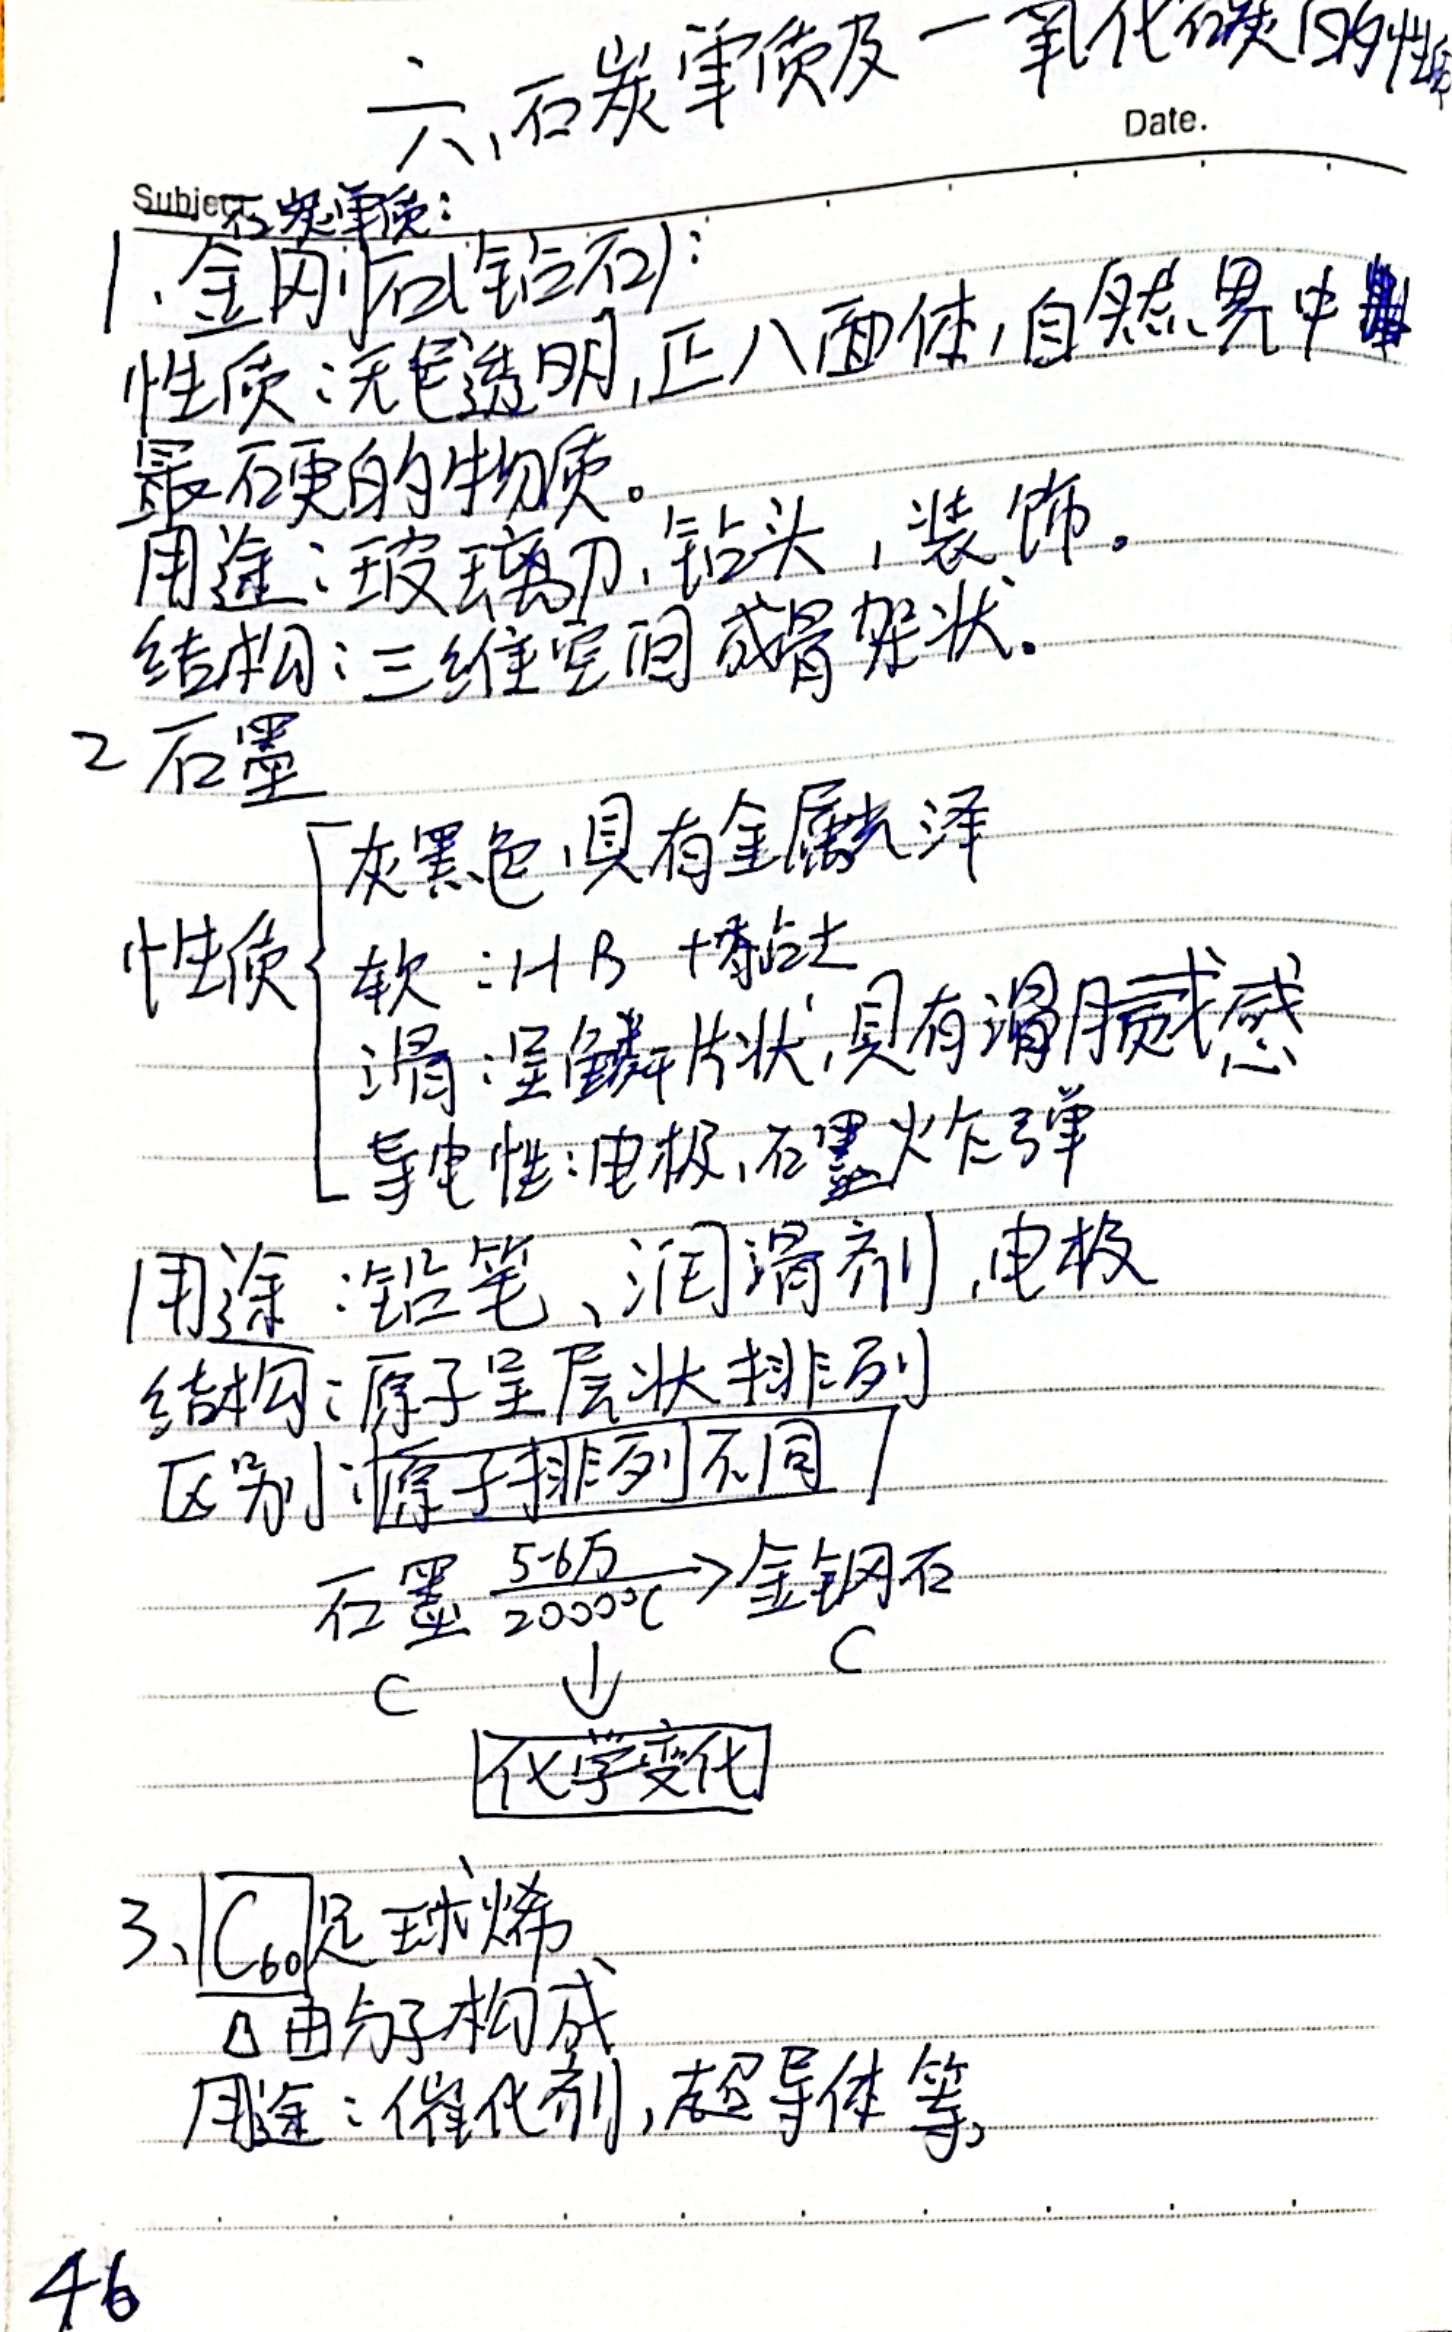 六、碳单质及一氧化碳的性质
Date.
Subject
碳单质:
1、金刚石(钻石):
性质:无色透明,正八面体,自然界中
最硬的物质。
用途:玻璃刀、钻头,装饰。
结构:三维空间成骨架状。
2 石墨
灰黑色,具有金属光泽
性质 软:HB +黏土
滑:呈鳞片状,具有滑腻感
导电性:电极、石墨炸弹
用途:铅笔、润滑剂,电极
结构:原子呈层状排列
区别:原子排列不同
石墨 5-6万 2000℃ → 金钢石
C ↓ C
化学变化
3、C60足球烯
△由分子构成
用途:催化剂,超导体等,
46